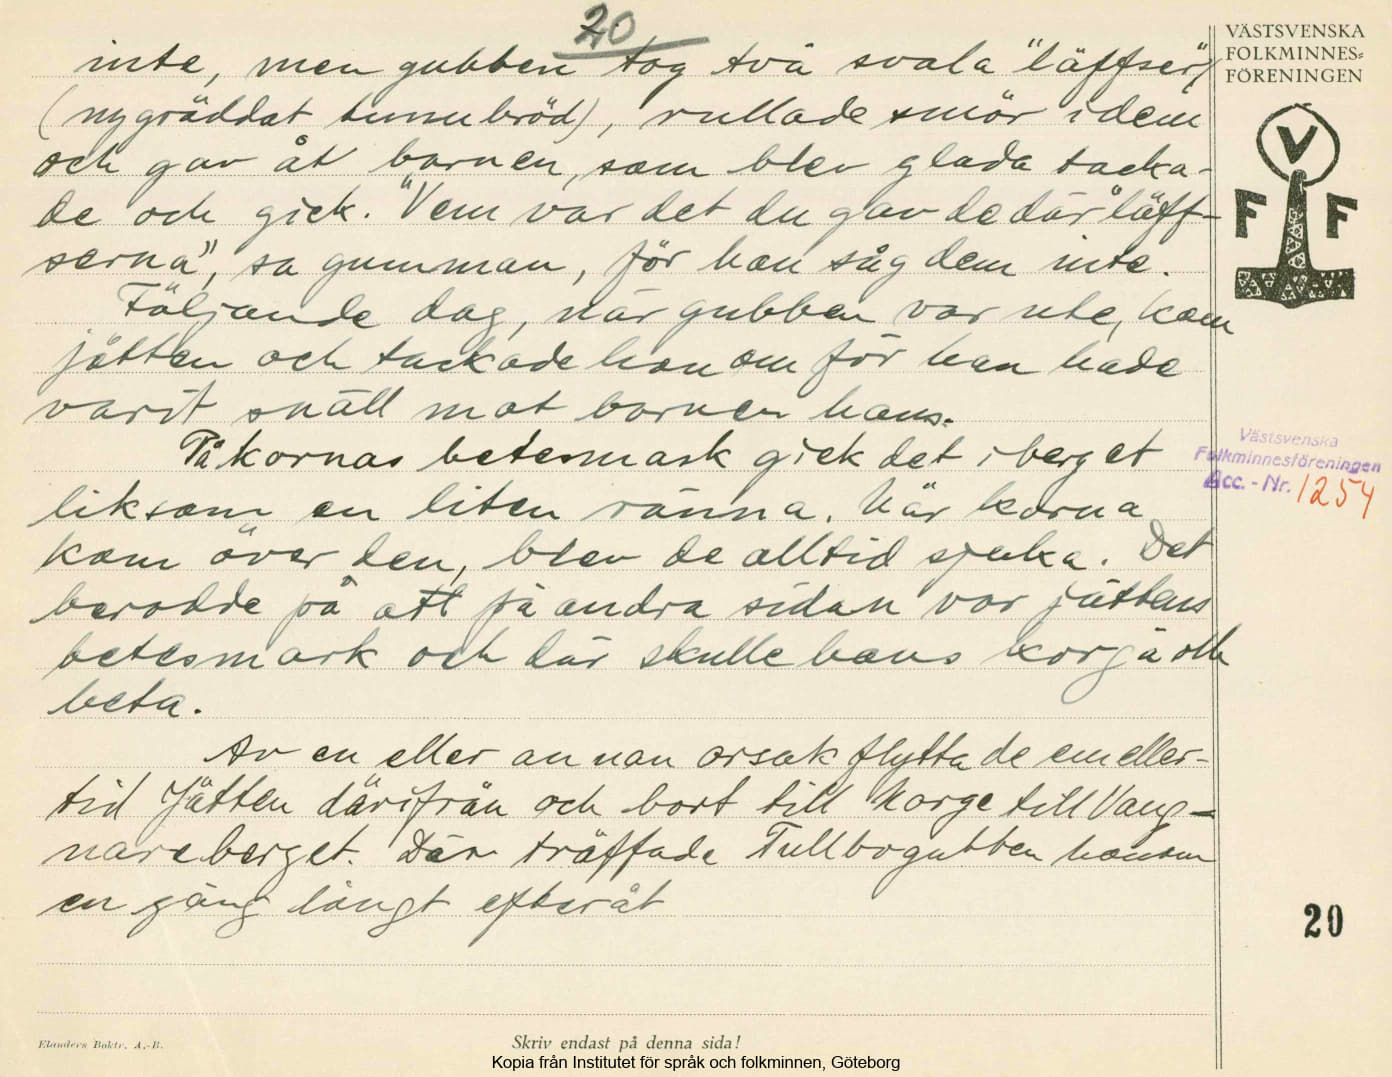 20
VÄSTSVENSKA
FOLKMINNES-
FÖRENINGEN
inte, men gubben tog två svala "läffser",
(nygräddat tunnbröd), rullade smör i dem
och gav åt barnen, som blev glada tacka-
de och gick. "Vem var det du gav de där "läff-
serna", sa gumman, för hon såg dem inte.
Följande dag, när gubben var ute, kom
jätten och tackade honom för han hade
varit snäll mot barnen hans.
På kornas betesmark gick det i berget
liksom en liten ränna. När korna
kom över den, blev de alltid sjuka. Det
berodde på att på andra sidan var jättens
betesmark och där skulle hans kor gå och
beta.
Av en eller annan orsak flyttade emeller-
tid Jätten därifrån och bort till Norge till Vang-
nareberget. Där träffade Tullbogubben honom
en gång långt efteråt
V
F F
Västsvenska
Folkminnesföreningen
Acc.-Nr. 1254
20
Elanders Boktr. A.-B.
Skriv endast på denna sida!
Kopia från Institutet för språk och folkminnen, Göteborg